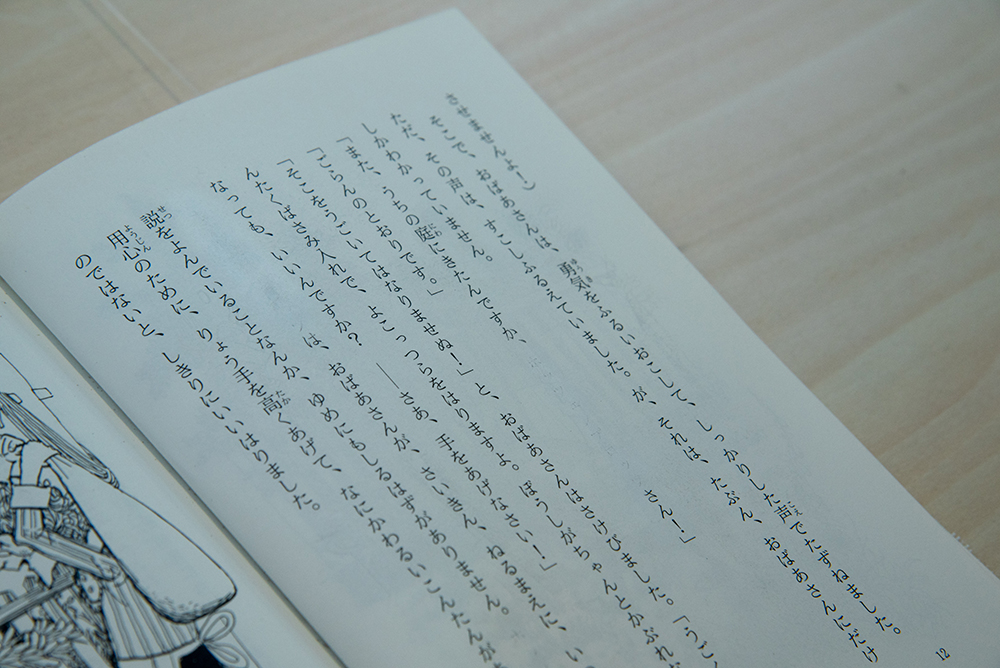 させませんよ！）
そこで、おばあさんは、勇気をふるいおこして、しっかりした声でたずねました。
ただ、その声は、すこしふるえていました。が、それは、たぶん、おばあさんにだけ
しかわかっていません。
「また、うちの庭にきたんですか、　　さん！」
「ごらんのとおりです。」
「そこをうごいてはなりませぬ！」と、おばあさんはさけびました。「うご
んたくばさみ入れで、よこっつらをはりますよ。ぼうしがちゃんとかぶれ
なっても、いいんですか？　――さあ、手をあげなさい！」
は、おばあさんが、さいきん、ねるまえに、い
説をよんでいることなんか、ゆめにもしるはずがありません。
用心のために、りょう手を高くあげて、なにかわるいこんたんが
のではないと、しきりにいいはりました。
12